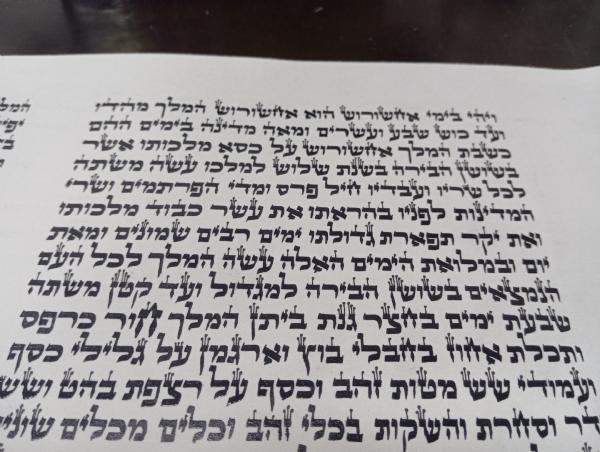 ויהי בימי אחשורוש הוא אחשורוש המלך מהדו
ועד כוש שבע ועשרים ומאה מדינה בימים ההם
כשבת המלך אחשורוש על כסא מלכותו אשר
בשושן הבירה בשנת שלוש למלכו עשה משתה
לכל שריו ועבדיו חיל פרס ומדי הפרתמים ושרי
המדינות לפניו בהראתו את עשר כבוד מלכותו
ואת יקר תפארת גדולתו ימים רבים שמונים ומאת
יום ובמלואת הימים האלה עשה המלך לכל העם
הנמצאים בשושן הבירה למגדול ועד קטן משתה
שבעת ימים בחצר גנת ביתן המלך חור כרפס
ותכלת אחוז בחבלי בוץ וארגמן על גלילי כסף
ועמודי שש מטות זהב וכסף על רצפת בהט ושש
דר וסחרת והשקות בכלי זהב וכלים מכלים שוני
המל